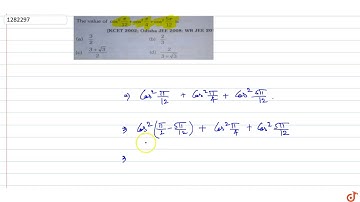 1282297
The value of cos² π/12 + cos² π/4 + cos² 5π/12
[RCET 2002; Orissa JEE 2008; WB JEE
(a) 3/2 (b) 2/3
(c) (3+√3)/2 (d) 2/(3+√3)
⇒) Cos² π/12 + Cos² π/4 + Cos² 5π/12.
⇒ Cos² (π/2 − 5π/12) + Cos² π/4 + Cos² 5π/12
⇒
doubtnut